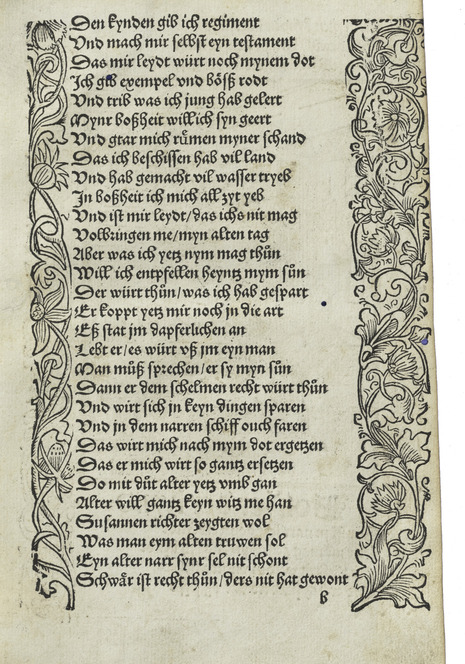 Den kynden gib ich regiment
Vnd mach mir selbst eyn testament
Das mir leydt würt noch mynem dot
Ich gib exempel vnd böß rodt
Vnd trib was ich jung hab gelert
Mynr boßheit will ich syn geert
Vnd gtar mich růmen myner schand
Das ich beschissen hab vil land
Vnd hab gemacht vil wasser tryeb
In boßheit ich mich all zyt yeb
Vnd ist mir leydt/ das ichs nit mag
Volbringen me/ myn alten tag
Aber was ich yetz nym mag thůn
Will ich entpfellen heyntz mym sůn
Der würt thůn/ was ich hab gespart
Er koppt yetz mir noch jn die art
Eß stat jm dapferlichen an
Lebt er/ es würt vß jm eyn man
Man můß sprechen/ er sy myn sůn
Dann er dem schelmen recht würt thůn
Vnd wirt sich jn keyn dingen sparen
Vnd jn dem narren schiff ouch faren
Das wirt mich nach mym dot ergetzen
Das er mich wirt so gantz ersetzen
Do mit důt alter yetz vmb gan
Alter will gantz keyn witz me han
Susannen richter zeygten wol
Was man eym alten truwen sol
Eyn alter narr synr sel nit schont
Schwår ist recht thůn/ ders nit hat gewont
b